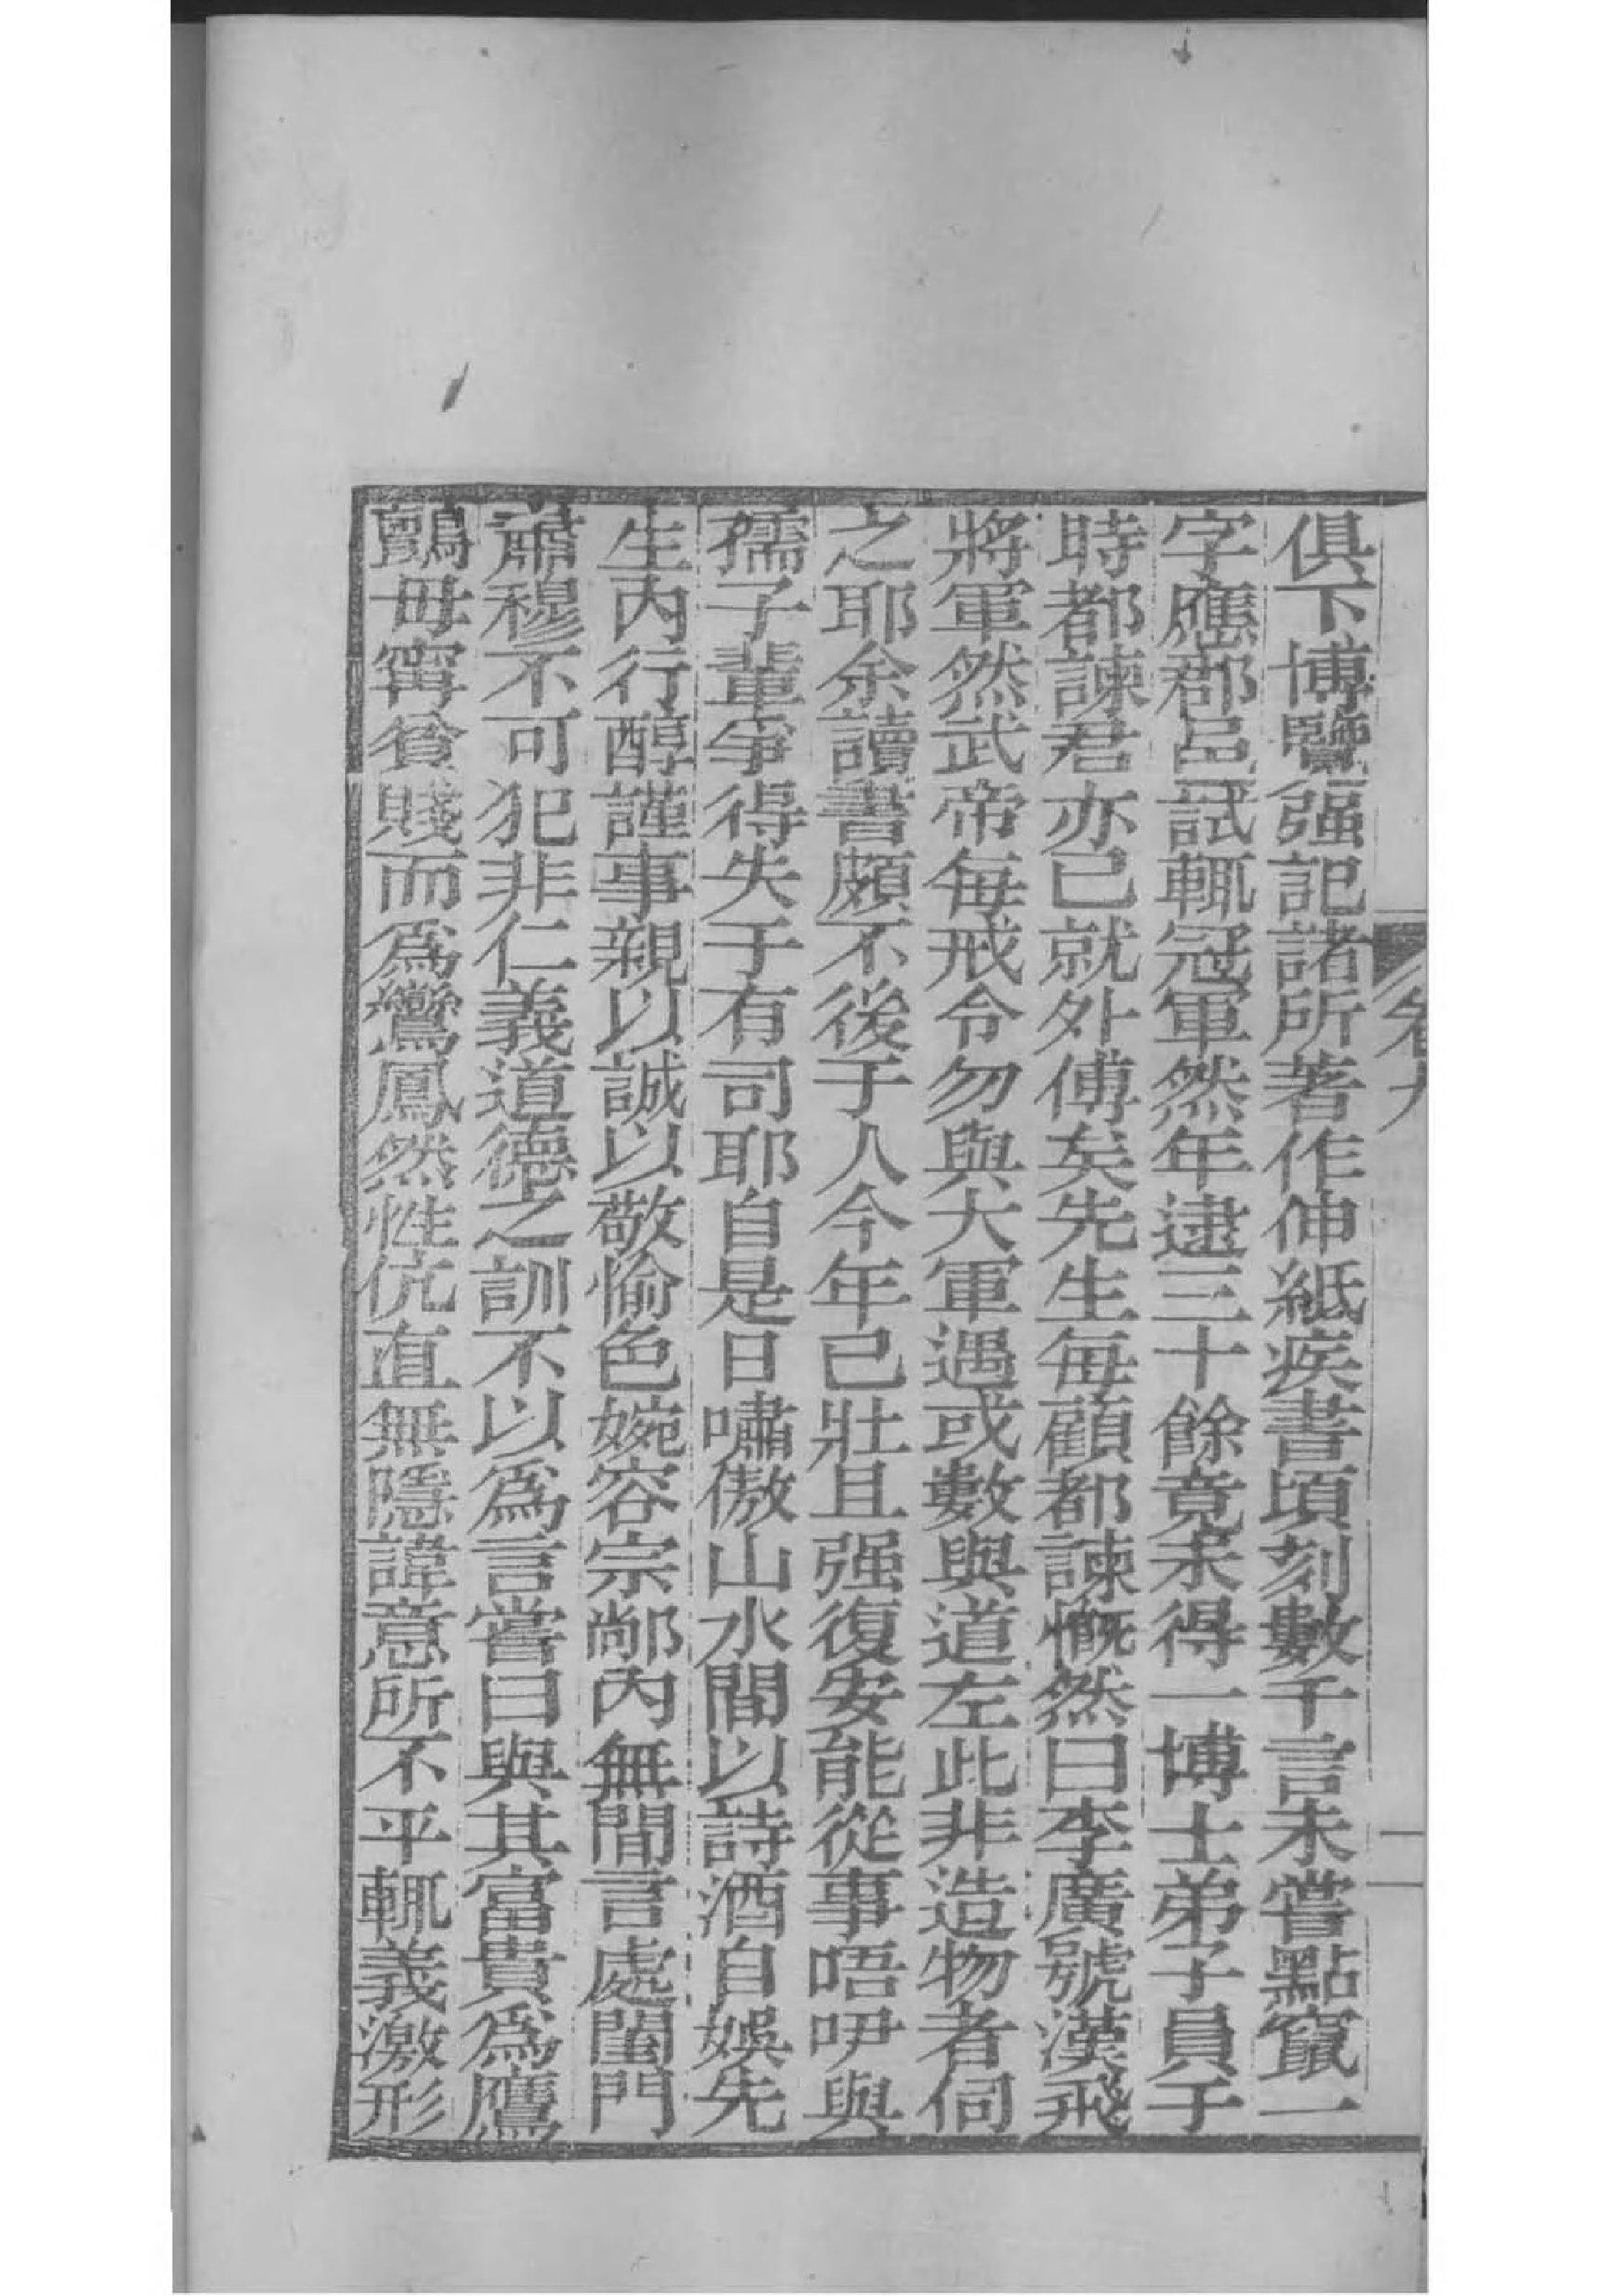 卷九
俱下博覽强記諸所著作伸紙疾書頃刻數千言未嘗點竄一
字應郡邑試輒冠軍然年逮三十餘竟未得一博士弟子員于
時都諫君亦已就外傅矣先生每顧都諫慨然曰李廣號漢飛
將軍然武帝每戒令勿與大軍遇或數與道左此非造物者伺
之耶余讀書頗不後于人今年已壯且强復安能從事唔咿與
孺子輩爭得失于有司耶自是日嘯傲山水間以詩酒自娛先
生內行醇謹事親以誠以敬愉色婉容宗鄰內無間言處閨門
肅穆不可犯非仁義道德之訓不以為言嘗曰與其富貴為鷹
鸇毋寧貧賤而為鸞鳳然性伉直無隱諱意所不平輒義激形